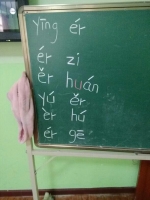 yīng ér
ér zi
ěr huán
yú ěr
èr hú
ér gē